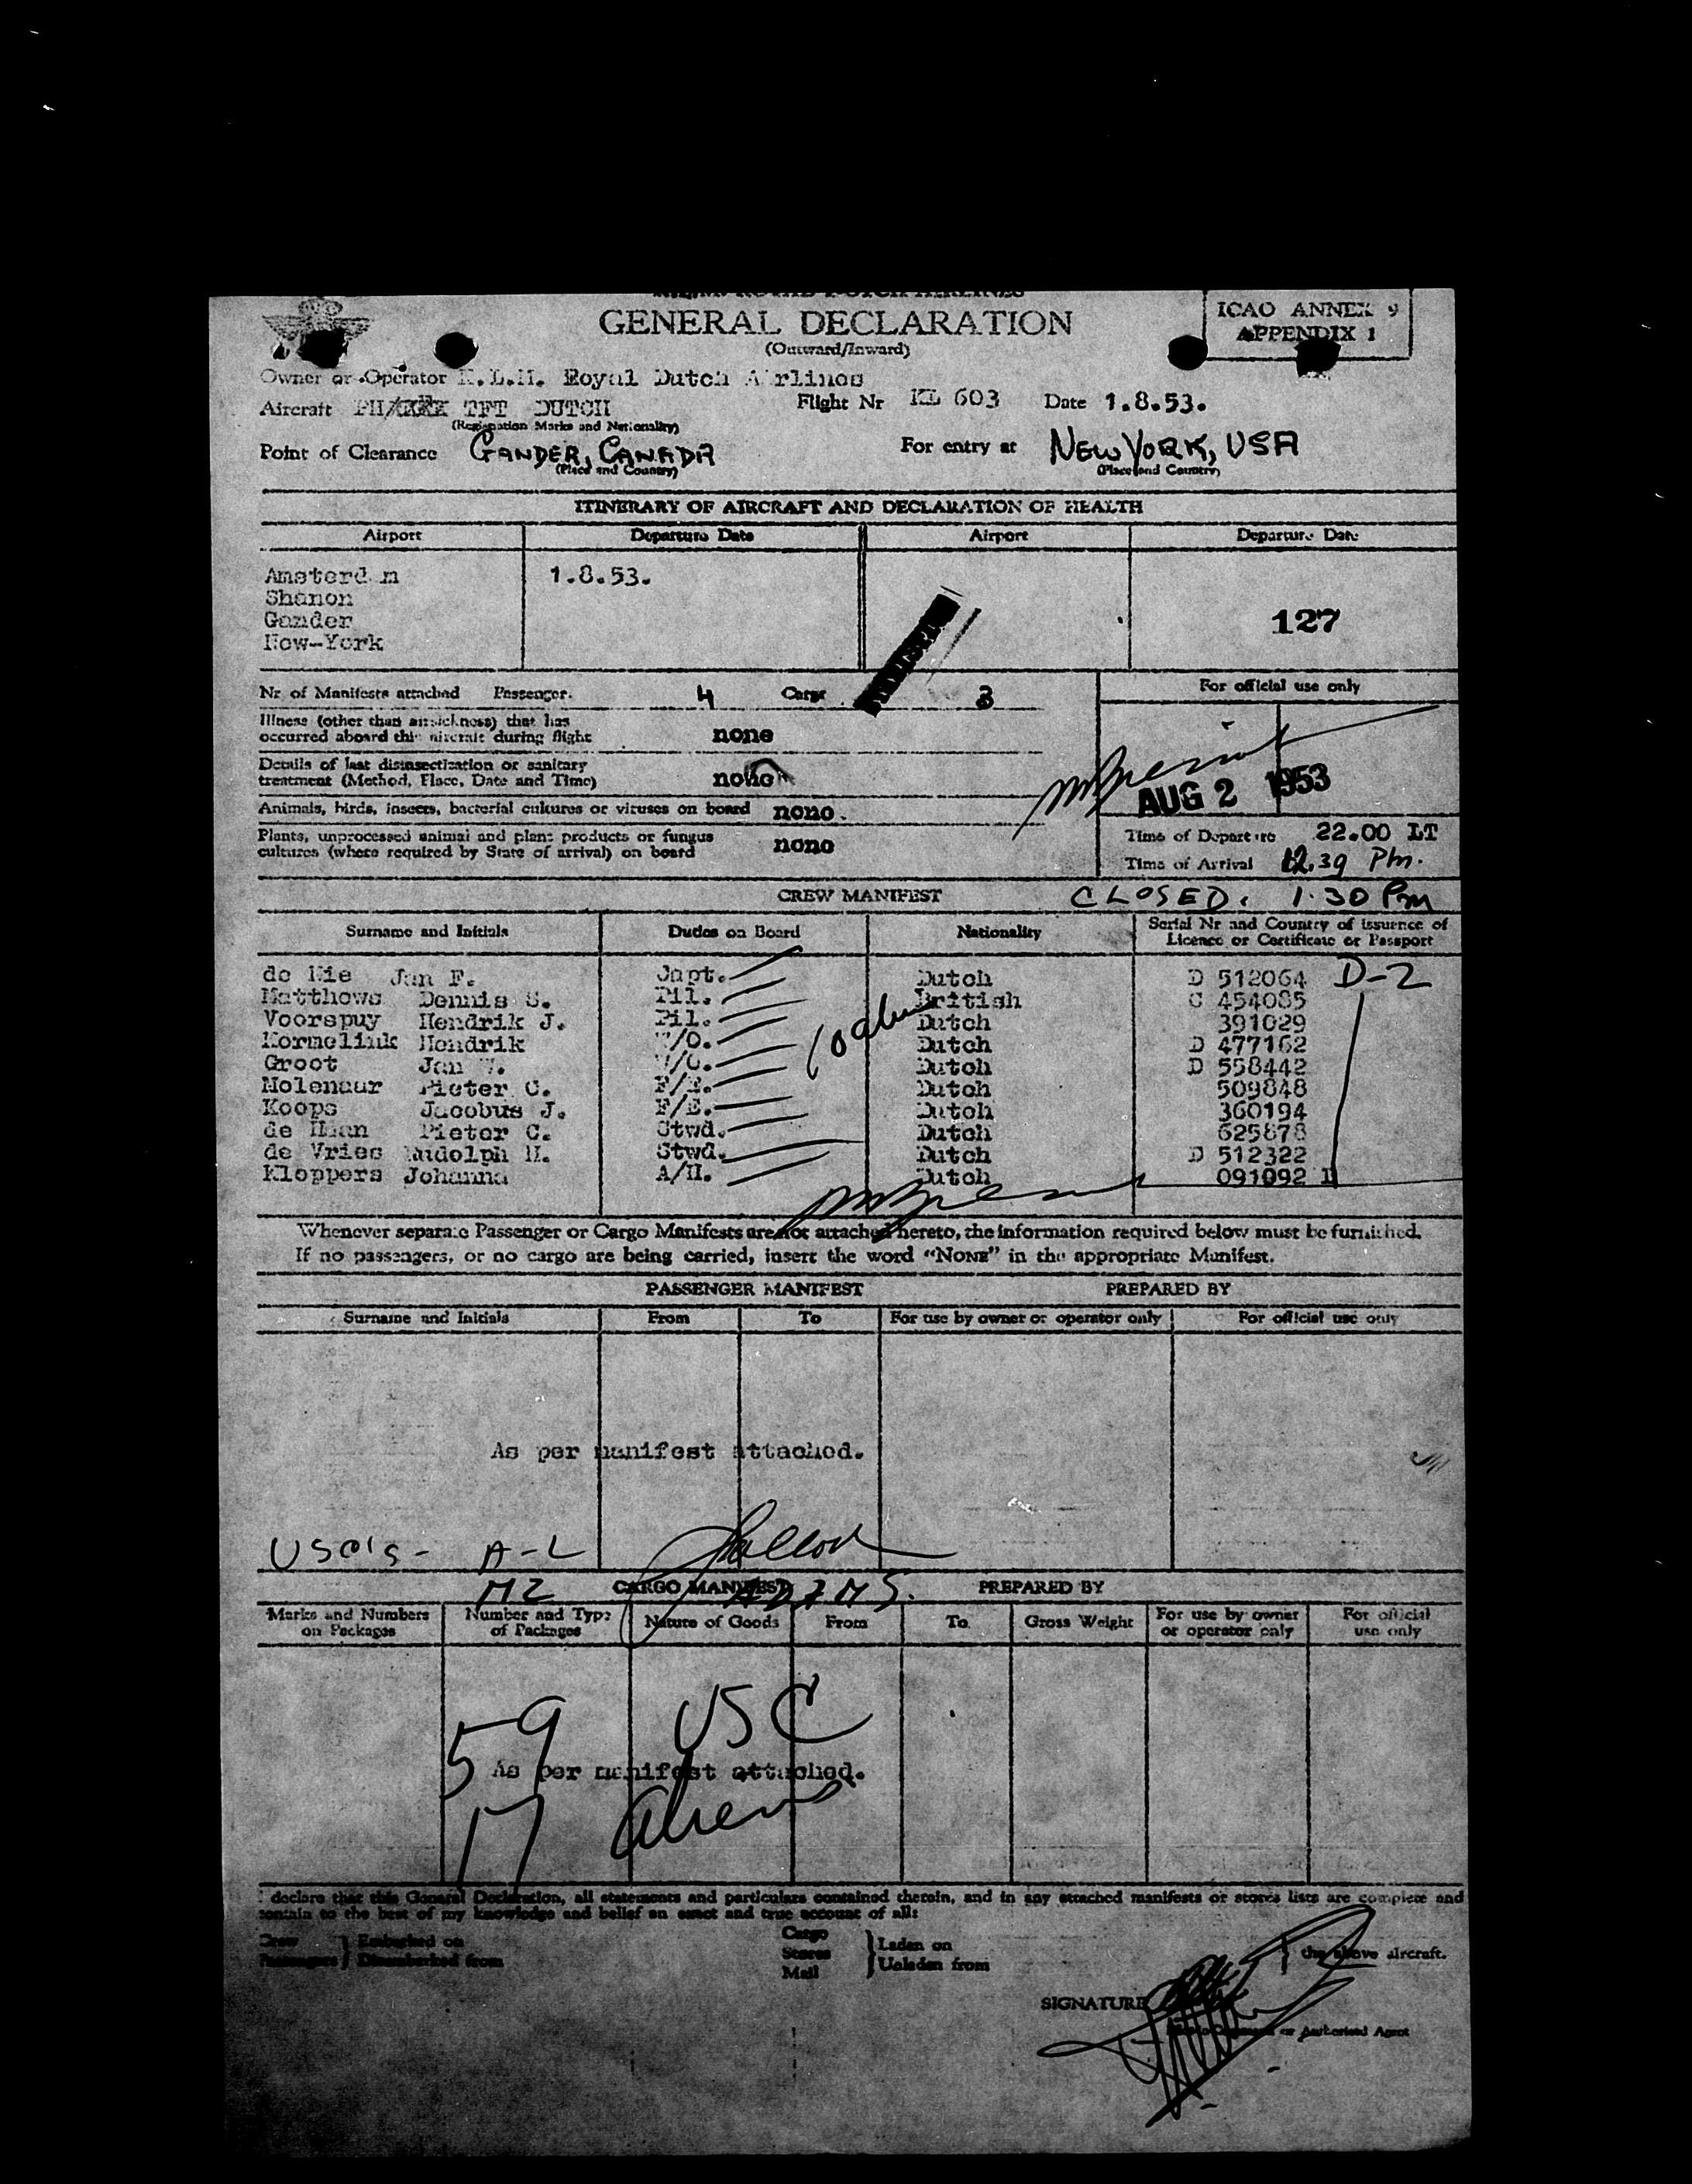 GENERAL DECLARATION
(Outward/Inward)
ICAO ANNEX 9
APPENDIX 1
Owner or Operator K.L.M. Royal Dutch Airlines
Aircraft PH/ TFT DUTCH
Flight Nr KL 603
Date 1.8.53.
(Registration Marks and Nationality)
Point of Clearance GANDER, CANADA
(Place and Country)
For entry at NEW YORK, USA
(Place and Country)
ITINERARY OF AIRCRAFT AND DECLARATION OF HEALTH
Airport Departure Date Airport Departure Date
Amsterdam 1.8.53.
Shanon
Gander
New-York
127
Nr of Manifests attached Passenger. 4 Cargo 3
For official use only
Illness (other than airsickness) that has
occurred aboard this aircraft during flight none
Details of last disinsectization or sanitary
treatment (Method, Place, Date and Time) none
AUG 2 1953
Animals, birds, insects, bacterial cultures or viruses on board none.
Plants, unprocessed animal and plant products or fungus
cultures (where required by State of arrival) on board none
Time of Departure 22.00 LT
Time of Arrival 12.39 Pm.
CREW MANIFEST
CLOSED. 1.30 Pm
Surname and Initials Duties on Board Nationality Serial Nr and Country of issuence of
Licence or Certificate or Passport
de Nie Jan F. Capt. Dutch D 512064 D-2
Matthews Dennis S. Pil. British C 454085
Voorspuy Hendrik J. Pil. Dutch 391029
Kormelink Hendrik W/O. Dutch D 477162
Groot Jan W. W/O. Dutch D 558442
Molenaar Pieter C. F/E. Dutch 509848
Koops Jacobus J. F/E. Dutch 360194
de Haan Pieter C. Stwd. Dutch 625878
de Vries Rudolph H. Stwd. Dutch D 512322
Kloppers Johanna A/H. Dutch 091092 D
Whenever separate Passenger or Cargo Manifests are not attached hereto, the information required below must be furnished.
If no passengers, or no cargo are being carried, insert the word “NONE” in the appropriate Manifest.
PASSENGER MANIFEST PREPARED BY
Surname and Initials From To For use by owner or operator only For official use only
As per manifest attached.
USC's - A-L
MZ ADAMS.
CARGO MANIFEST PREPARED BY
Marks and Numbers
on Packages
Number and Type
of Packages
Nature of Goods From To Gross Weight
For use by owner
or operator only
For official
use only
59 USC
As per manifest attached.
17 aliens
I declare that this General Declaration, all statements and particulars contained therein, and in any attached manifests or stores lists are complete and
contain to the best of my knowledge and belief an exact and true account of all:
Crew
Passengers
Embarked on
Disembarked from
Cargo
Stores
Mail
Laden on
Unladen from
the above aircraft.
SIGNATURE
or Authorised Agent